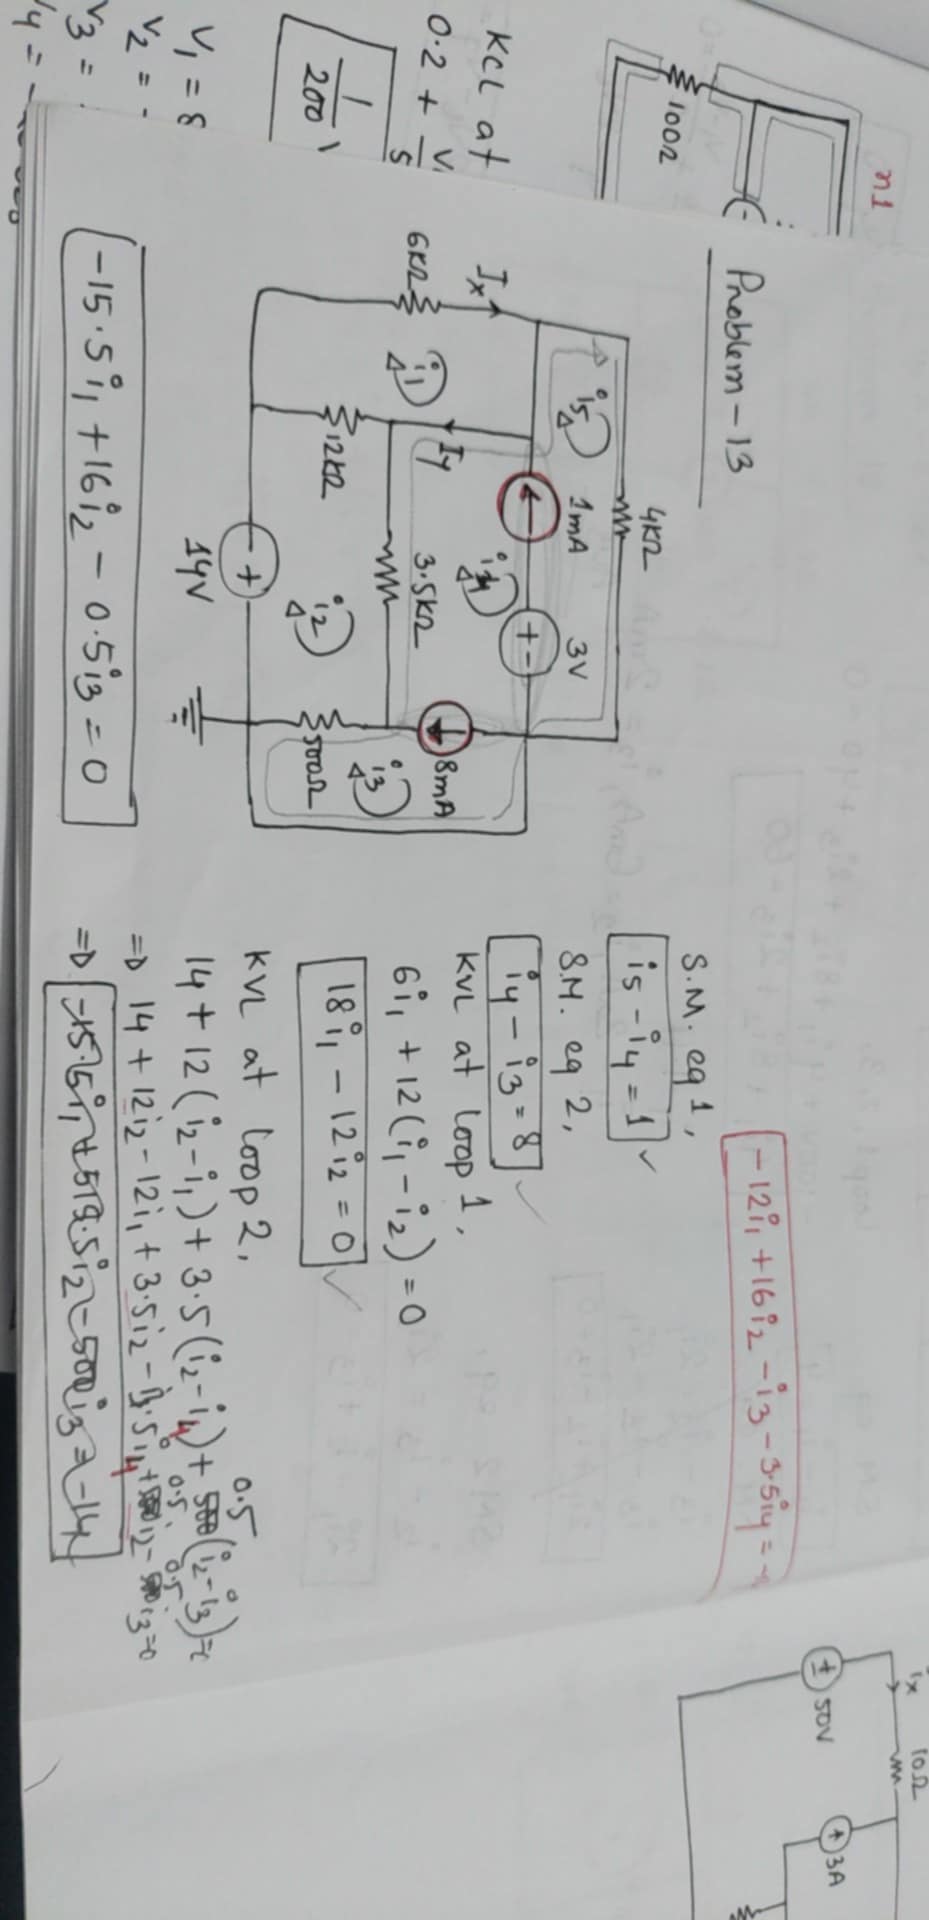 n1
100Ω
KCL at
0.2 +
5
1
200
V1 = 8
V2 = -
V3 =
V4 = -
Problem - 13
4KΩ
i5
1mA
3V
Ix
Iy
i4
8mA
6KΩ
i1
3.5KΩ
i3
12KΩ
i2
500Ω
14V
-15.5i1 + 16i2 - 0.5i3 = 0
-12i1 + 16i2 - i3 - 3.5i4 = -
S.M. eq 1,
i5 - i4 = 1 ✓
S.M. eq 2,
i4 - i3 = 8 ✓
KVL at loop 1,
6i1 + 12(i1 - i2) = 0
18i1 - 12i2 = 0 ✓
KVL at loop 2,
14 + 12(i2 - i1) + 3.5(i2 - i4) + 0.5(i2 - i3) =
=D 14 + 12i2 - 12i1 + 3.5i2 - 3.5i4 + 0.5i2 - 0.5i3 = 0
=D -15.5i1 + 515.5i2 - 500i3 = -14
ix
10Ω
50V
3A